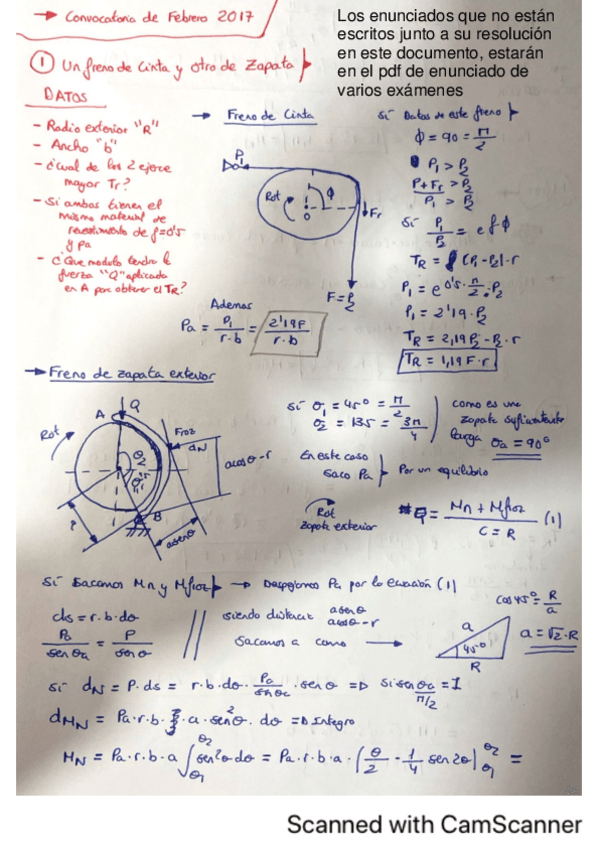 → Convocatoria de Febrero 2017
Los enunciados que no están
escritos junto a su resolución
en este documento, estarán
en el pdf de enunciado de
varios exámenes
① Un freno de Cinta y otro de Zapata
DATOS
- Radio exterior "R"
- Ancho "b"
- ¿Cual de los 2 ejerce
mayor Tr?
- Si ambas tienen el
mismo material de
revestimiento de f=0'5
y Pa
- ¿Que modulo tendra la
fuerza "Q" aplicada
en A para obtener el TR?
→ Freno de Cinta
P1
Rot
φ
O
Fr
F = P2
Ademas
Pa = P1 / r·b = 2'19F / r·b
Si Datos de este freno
φ = 90 = π/2
P1 > P2
P + Fr > P2
P1 > P2
Si P1/P2 = e f φ
TR = (P1 - P2)·r
P1 = e 0's·π/2 · P2
P1 = 2'19·P2
TR = 2,19P2 - P2·r
TR = 1,19 F·r
→ Freno de zapata exterior
A
Q
Rot
Froz
dN
θ2
θ1
B
r
a cosθ-r
a senθ
Si θ1 = 45º = π/2
θ2 = 135 = 3π/4
como es una
zapata suficientemente
larga θa = 90º
En este caso
saco Pa
Por un equilibrio
Rot
zapata exterior
Q = Mn + Mfroz / C = R (1)
Si Sacamos Mn y Mfroz → Despejamos Pa por la ecuación (1)
ds = r·b·dθ
Pa / sen θa = P / sen θ
siendo distancias a senθ
a cosθ - r
Sacamos a como →
a
45º
R
Cos 45º = R/a
a = √2·R
Si dN = P·ds = r·b·dθ · Pa / senθa · senθ => Si sen θa = 1
π/2
dMN = Pa·r·b· ·a·sen²θ·dθ => Integro
MN = Pa·r·b·a ∫θ1 θ2 sen²θ dθ = Pa·r·b·a·(θ/2 - 1/4 sen 2θ)|θ1 θ2 =
Scanned with CamScanner